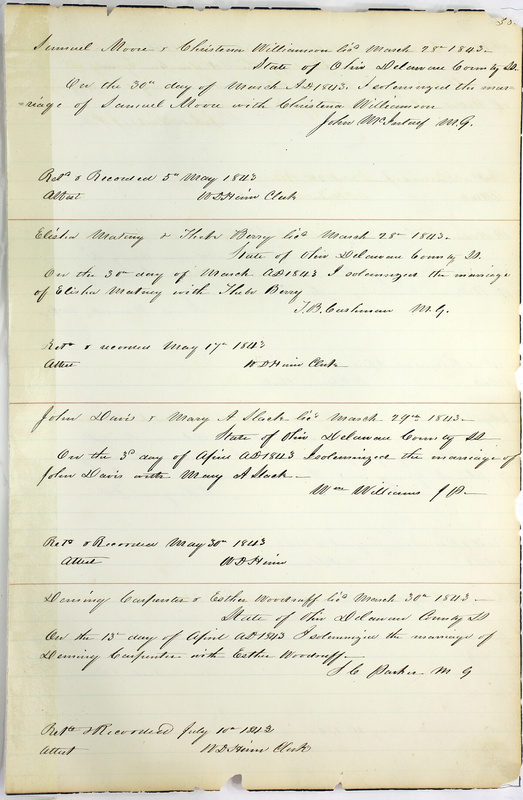 Samuel Moore & Christena Williamson lic March 28th 1843
State of Ohio Delaware County SS.
On the 30th day of March AD 1843. I solemnized the mar-
riage of Samuel Moore with Christena Williamson
John McInturf M.G.
Retd & Recorded 5th May 1843
Attest W D Heim Clerk
Elisha Matney & Thebe Berry lic March 28th 1843
State of Ohio Delaware County SS.
On the 30th day of March AD 1843 I solemnized the marriage
of Elisha Matney with Thebe Berry
T. B. Cushman M.G.
Retd & recorded May 17th 1843
Attest W D Heim Clerk
John Davis & Mary A Slack lic March 29th 1843
State of Ohio Delaware County SS
On the 3d day of April AD 1843 I solemnized the marriage of
John Davis with Mary A Slack
Wm Williams J P
Retd & Recorded May 30th 1843
Attest W D Heim
Deming Carpenter & Esther Woodruff lic March 30th 1843
State of Ohio Delaware County SS
On the 13th day of April AD 1843 I solemnized the marriage of
Deming Carpenter with Esther Woodruff
S C Parker M G
Retd & Recorded July 10th 1843
Attest W D Heim Clerk